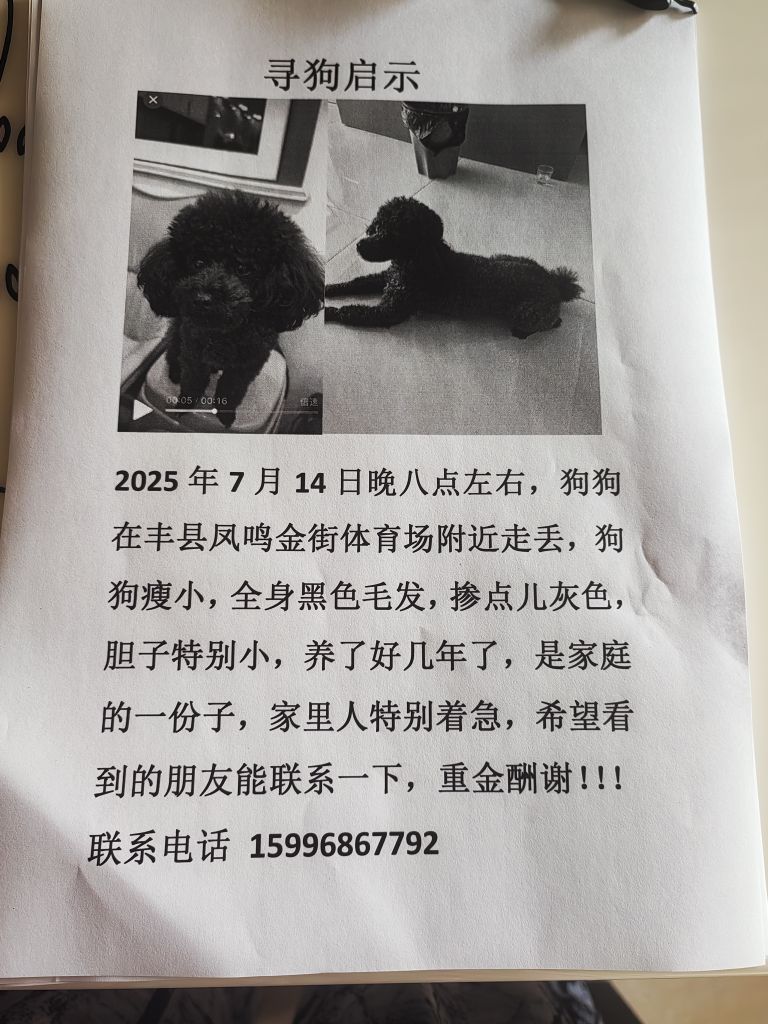 寻狗启示
00:05 / 00:16
倍速
2025 年 7 月 14 日晚八点左右，狗狗
在丰县凤鸣金街体育场附近走丢，狗
狗瘦小，全身黑色毛发，掺点儿灰色，
胆子特别小，养了好几年了，是家庭
的一份子，家里人特别着急，希望看
到的朋友能联系一下，重金酬谢！！！
联系电话 15996867792